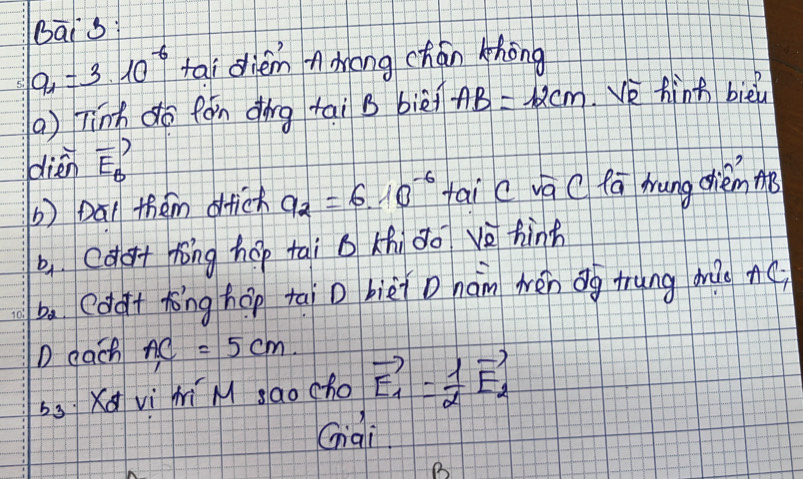 Bài 3:
q₁ = 3.10⁻⁶ tại điểm A trong chân không
a) Tính độ lớn đtrg tại B biết AB = 12cm. Vẽ hình biểu
diễn E⃗_B
b) Đặt thêm đtích q₂ = 6.10⁻⁶ tại C và C là trung điểm AB
b₁. Cđđt tổng hợp tại B khi đó. Vẽ hình
b₂. Cđđt tổng hợp tại D biết D nằm trên đg trung trực AC;
D cách AC = 5cm.
b₃. Xđ vị trí M sao cho E⃗₁ = 1/2 E⃗₂
Giải
B